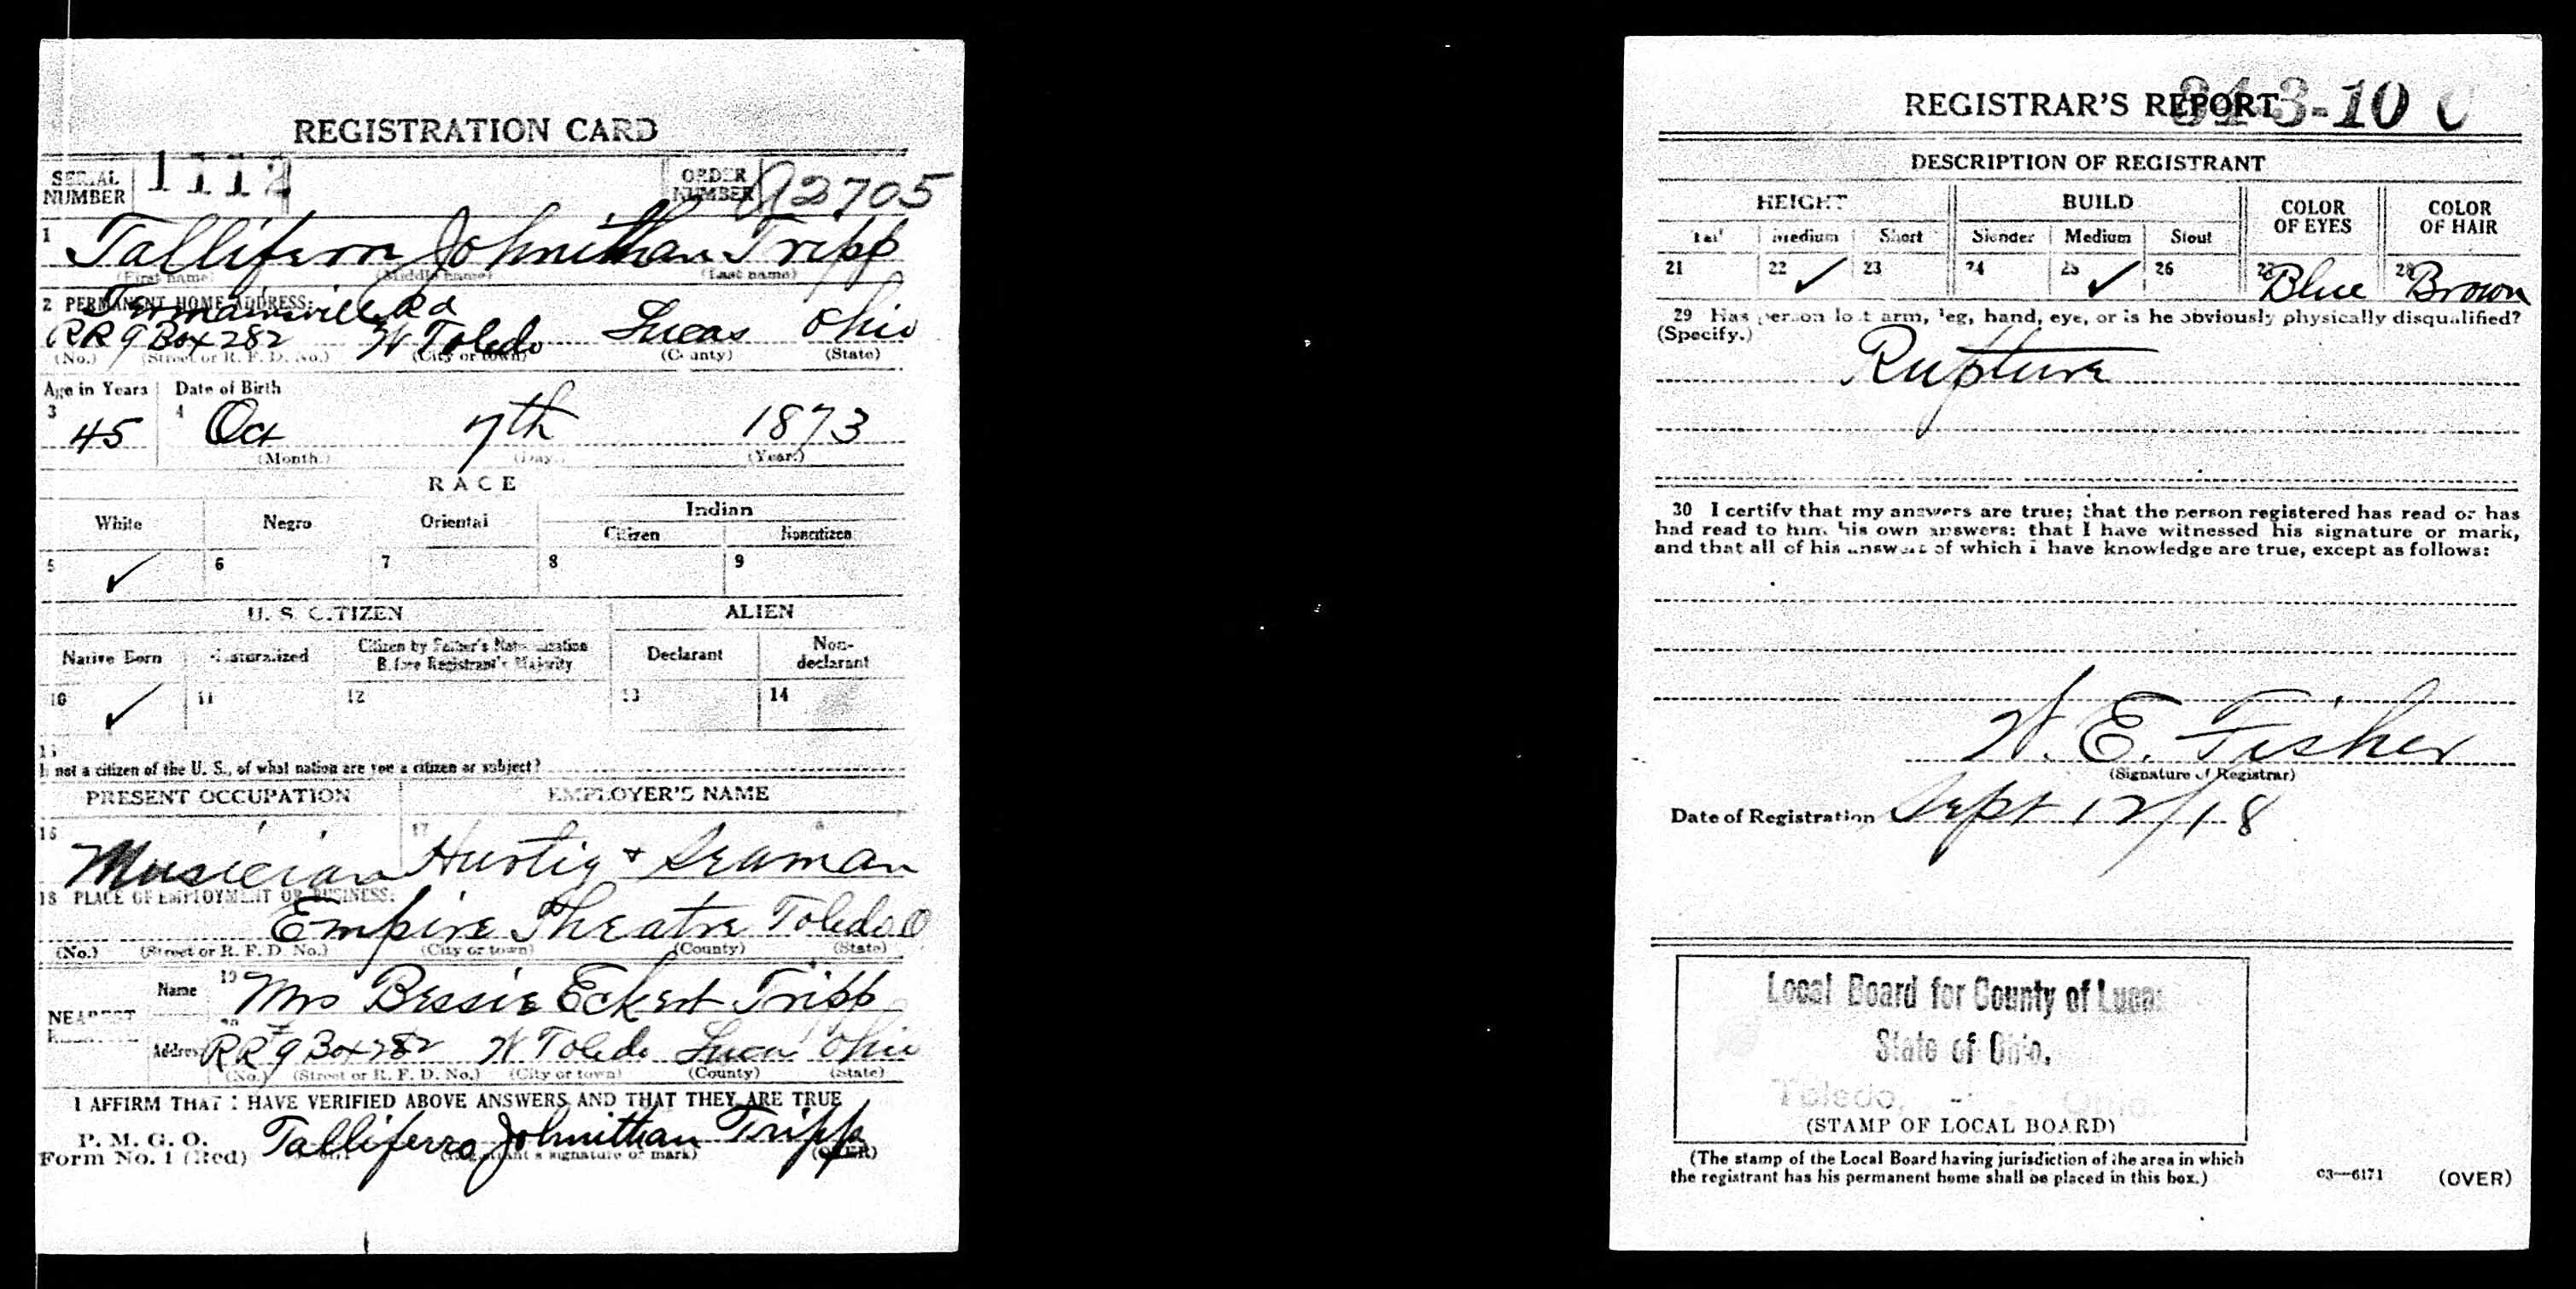 REGISTRATION CARD
SERIAL NUMBER 1112 ORDER NUMBER A2705
1 Talliferro Johnithan Tripp
(First name) (Middle name) (Last name)
2 PERMANENT HOME ADDRESS:
Rd
RR 9 Box 282 W Toledo Lucas Ohio
(No.) (Street or R. F. D. No.) (City or town) (County) (State)
Age in Years Date of Birth
3 45 4 Oct 7th 1873
(Month.) (Day.) (Year.)
RACE
White Negro Oriental Indian
Citizen Noncitizen
5 ✓ 6 7 8 9
U. S. CITIZEN ALIEN
Native Born Naturalized Citizen by Father's Naturalization Before Registrant's Majority Declarant Non-declarant
10 ✓ 11 12 13 14
15
If not a citizen of the U. S., of what nation are you a citizen or subject?
PRESENT OCCUPATION EMPLOYER'S NAME
16 Musician 17 Hurtig + Seaman
18 PLACE OF EMPLOYMENT OR BUSINESS:
Empire Theatre Toledo O
(No.) (Street or R. F. D. No.) (City or town) (County) (State)
NEAREST
Name 19 Mrs Bessie Eckert Tripp
Address 20 RR 9 Box 282 W Toledo Lucas Ohio
(No.) (Street or R. F. D. No.) (City or town) (County) (State)
I AFFIRM THAT I HAVE VERIFIED ABOVE ANSWERS AND THAT THEY ARE TRUE
P. M. G. O.
Form No. 1 (Red) Talliferro Johnithan Tripp
(Registrant's signature or mark) (OVER)
REGISTRAR'S REPORT 34-3-10 C
DESCRIPTION OF REGISTRANT
HEIGHT BUILD COLOR OF EYES COLOR OF HAIR
Tall Medium Short Slender Medium Stout
21 22 ✓ 23 24 25 ✓ 26 27 Blue 28 Brown
29 Has person lost arm, leg, hand, eye, or is he obviously physically disqualified?
(Specify.)
Rupture
30 I certify that my answers are true; that the person registered has read or has
had read to him his own answers; that I have witnessed his signature or mark,
and that all of his answers of which I have knowledge are true, except as follows:
W. E. Fisher
(Signature of Registrar)
Date of Registration Sept 12/18
Local Board for County of Lucas
State of Ohio.
Toledo, - Ohio.
(STAMP OF LOCAL BOARD)
(The stamp of the Local Board having jurisdiction of the area in which
the registrant has his permanent home shall be placed in this box.)
03—6171 (OVER)